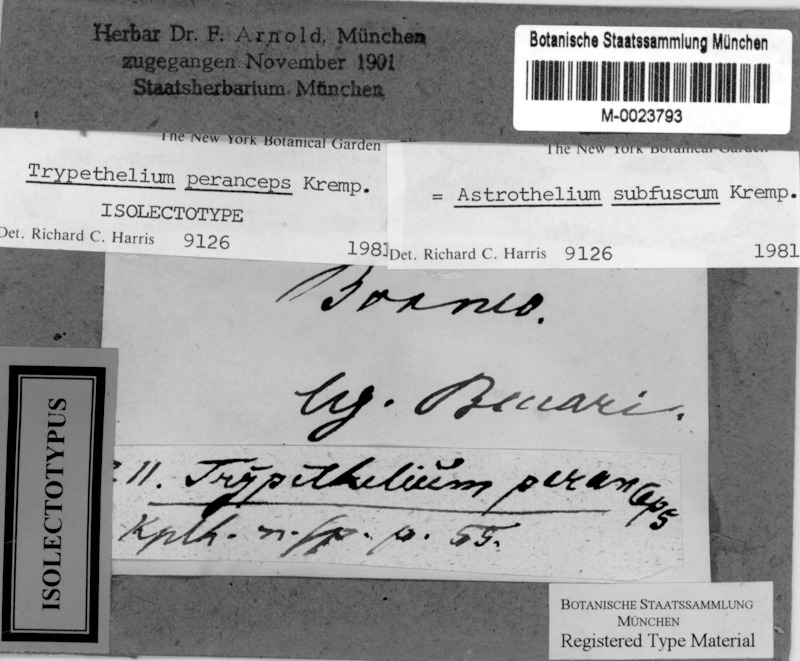 Herbar Dr. F. Arnold, München
zugegangen November 1901
Staatsherbarium München
Botanische Staatssammlung München
M-0023793
The New York Botanical Garden
Trypethelium peranceps Kremp.
ISOLECTOTYPE
Det. Richard C. Harris 9126 1981
The New York Botanical Garden
= Astrothelium subfuscum Kremp.
Det. Richard C. Harris 9126 1981
Borneo.
lg. Beccari.
11. Trypethelium peranceps
Kplh. n. sp. p. 55.
ISOLECTOTYPUS
BOTANISCHE STAATSSAMMLUNG
MÜNCHEN
Registered Type Material